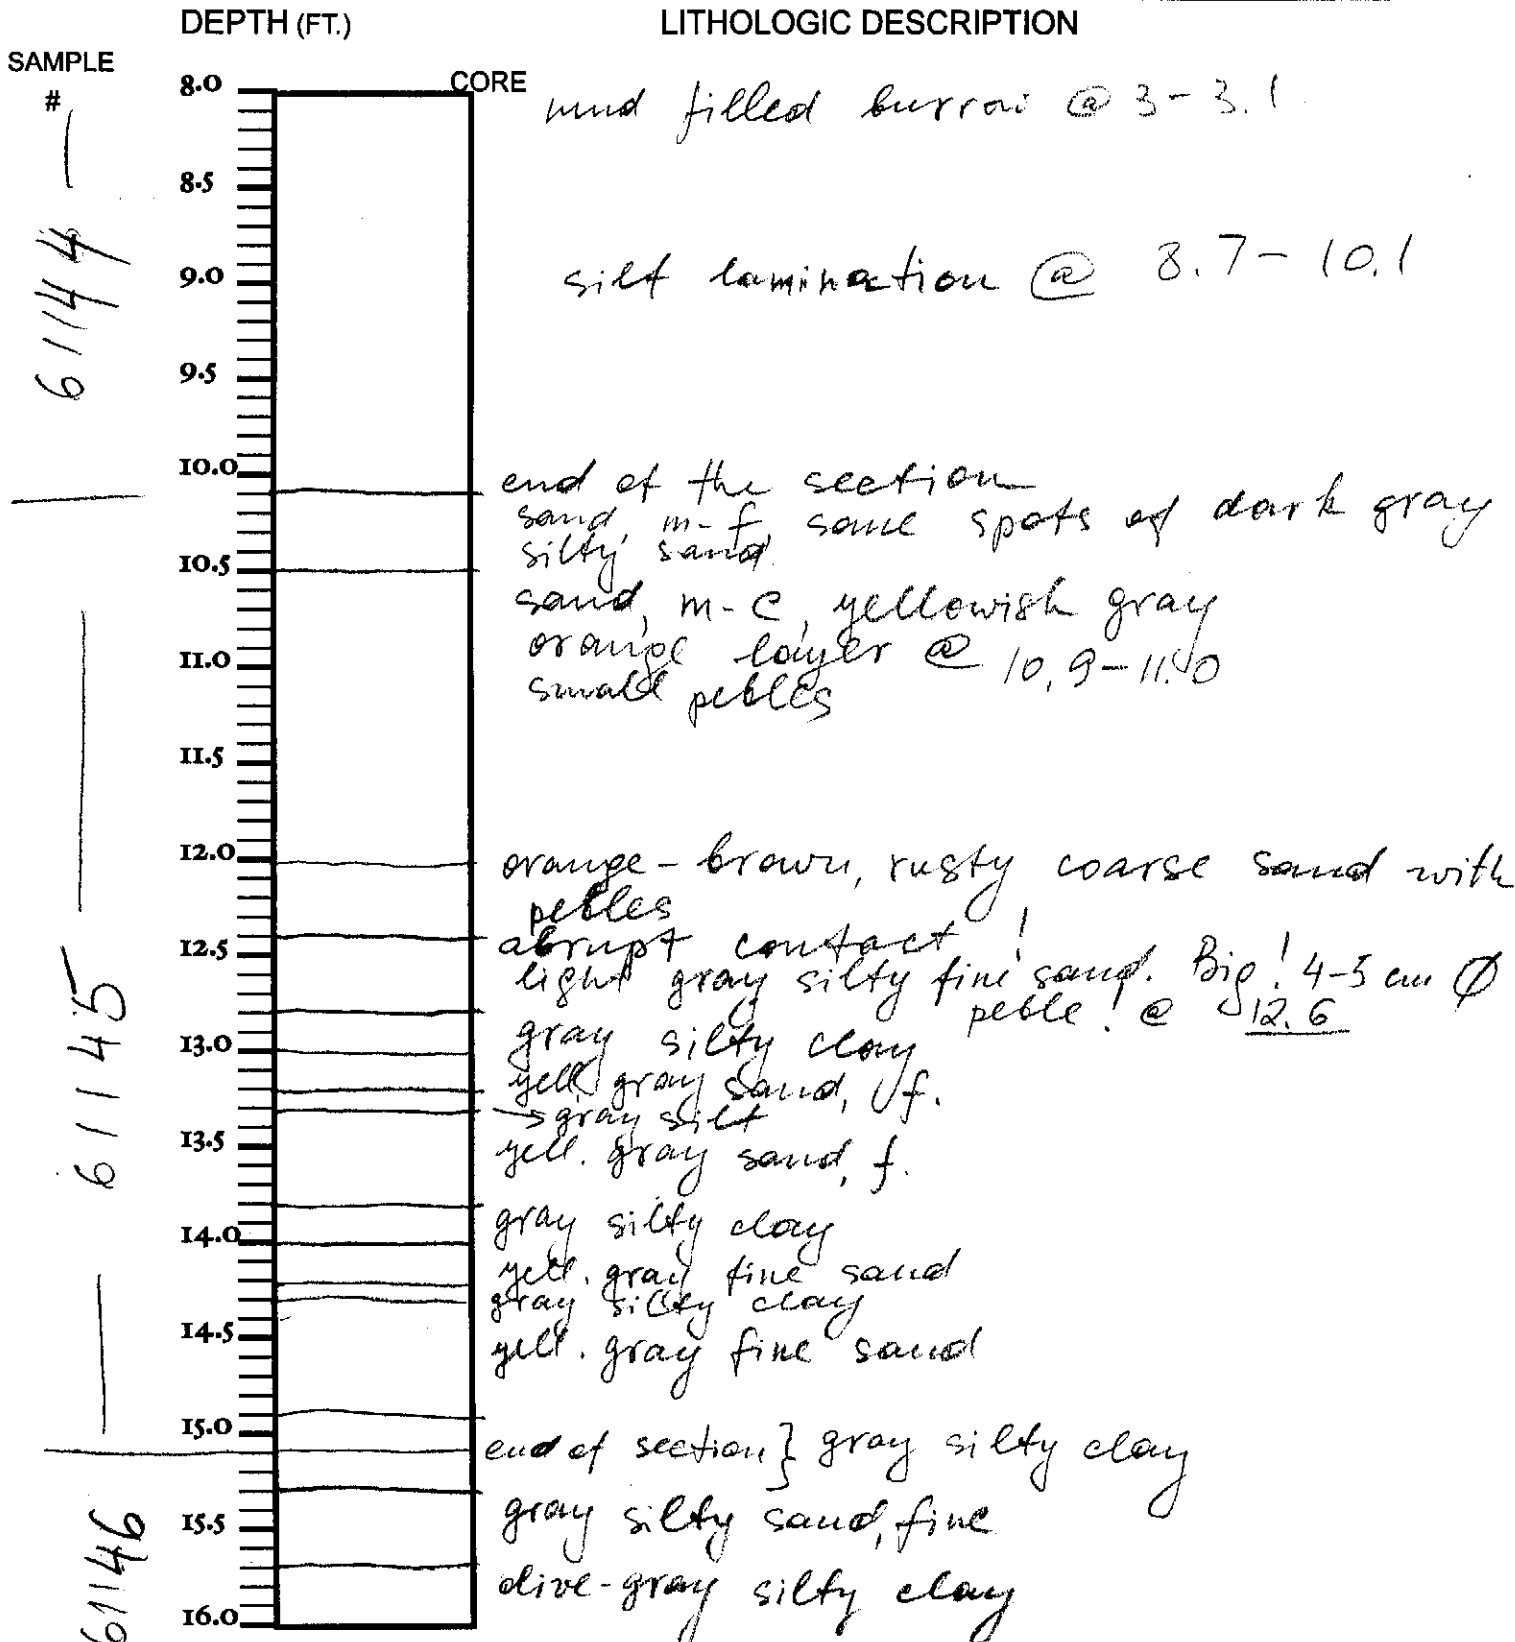 DEPTH (FT.)
LITHOLOGIC DESCRIPTION
SAMPLE
#
CORE
8.0
8.5
9.0
9.5
10.0
10.5
11.0
11.5
12.0
12.5
13.0
13.5
14.0
14.5
15.0
15.5
16.0
61144
61145
61146
mud filled burrow @ 3-3.1
silt lamination @ 8.7-10.1
end of the section
sand, m-f, some spots of dark gray
silty sand.
sand, m-c, yellowish gray
orange layer @ 10.9-11.0
small pebles
orange-brown, rusty coarse sand with
pebles
abrupt contact!
light gray silty fine sand. Big! 4-5 cm Ø
peble! @ 12.6
gray silty clay
yell. gray sand, f.
→ gray silt
yell. gray sand, f.
gray silty clay
yell. gray fine sand
gray silty clay
yell. gray fine sand
end of section } gray silty clay
gray silty sand, fine
olive-gray silty clay